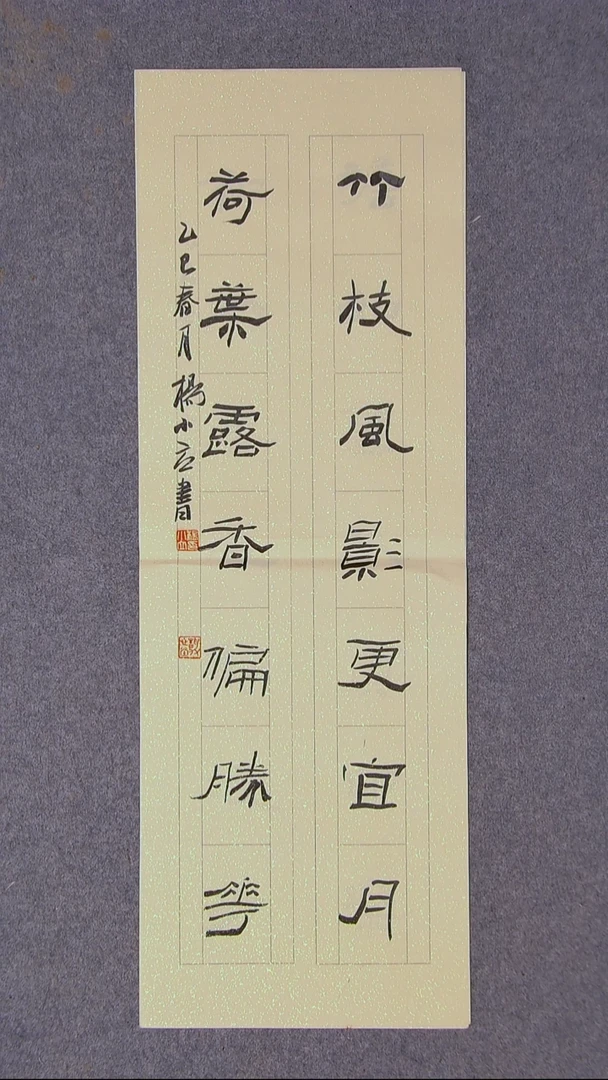 竹枝風影更宜月
荷葉露香偏勝花
乙巳春月楊小立書